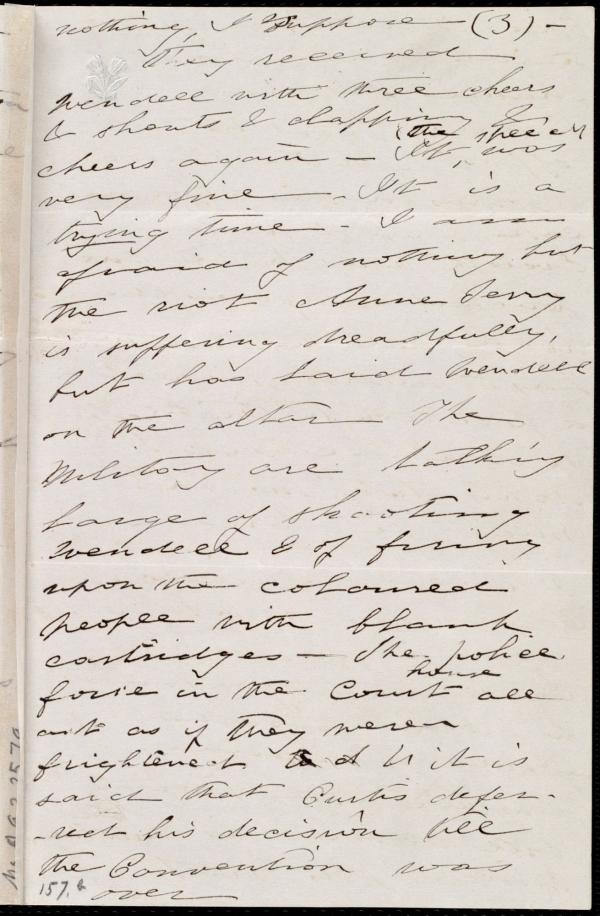 nothing, I suppose (3) -
They received
Wendell with three cheers
& shouts & clapping &
cheers again - the speech
It, was
very fine - It is a
trying time - I am
afraid of nothing but
the riot Anne Terry
is suffering dreadfully,
but has laid Wendell
on the altar The
Military are talking
large of shooting
Wendell & of firing
upon the coloured
people with blank
cartridges - The police
force in the Court house all
act as if they were
frightened it is
said that Curtis defer-
-red his decision till
the Convention was
over
157. b